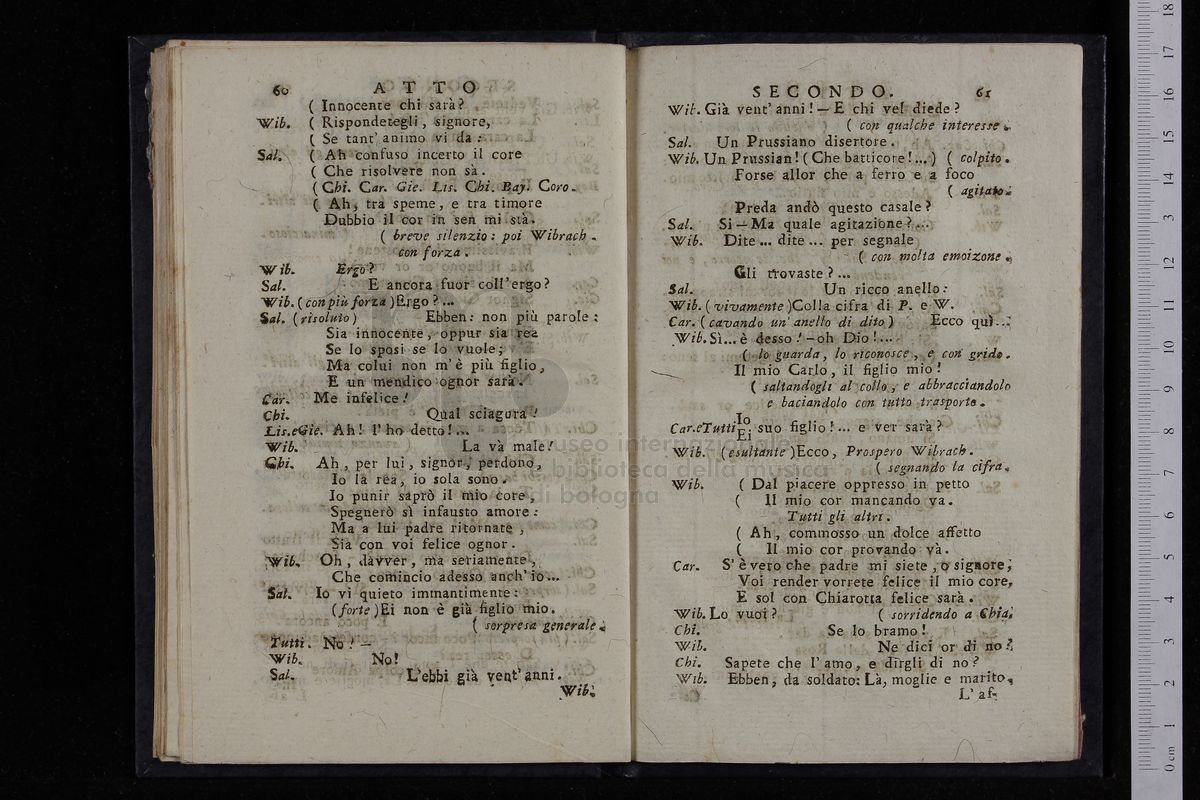 60 ATTO
( Innocente chi sarà?
Wib. ( Rispondetegli, signore,
( Se tant' animo vi da:
Sal. ( Ah confuso incerto il core
( Che risolvere non sà.
( Chi. Car. Gie. Lis. Chi. Bay. Coro.
( Ah, tra speme, e tra timore
Dubbio il cor in sen mi stà.
( breve silenzio: poi Wibrach
con forza.
Wib. Ergo?
Sal. E ancora fuor coll'ergo?
Wib. ( con più forza ) Ergo?...
Sal. ( risoluto ) Ebben: non più parole:
Sia innocente, oppur sia rea
Se lo sposi se lo vuole;
Ma colui non m'è più figlio,
E un mendico ognor sarà.
Car. Me infelice!
Chi. Qual sciagura!
Lis. e Gie. Ah! l'ho detto!...
Wib. La và male!
Chi. Ah, per lui, signor, perdono,
Io la rea, io sola sono.
Io punir saprò il mio core,
Spegnerò sì infausto amore:
Ma a lui padre ritornate,
Sia con voi felice ognor.
Wib. Oh, davver, ma seriamente,
Che comincio adesso anch'io...
Sal. Io vi quieto immantimente:
(forte) Ei non è già figlio mio.
( sorpresa generale.
Tutti. No! —
Wib. No!
Sal. L'ebbi già vent'anni.
Wib.
SECONDO. 61
Wib. Già vent'anni! — E chi vel diede?
( con qualche interesse.
Sal. Un Prussiano disertore.
Wib. Un Prussian! ( Che batticore!...) ( colpito.
Forse allor che a ferro e a foco
( agitato.
Preda andò questo casale?
Sal. Si — Ma quale agitazione?...
Wib. Dite... dite... per segnale
( con molta emoizone.
Gli trovaste?...
Sal. Un ricco anello:
Wib. ( vivamente ) Colla cifra di P. e W.
Car. ( cavando un' anello di dito ) Ecco quì...
Wib. Sì... è desso! - oh Dio!...
( lo guarda, lo riconosce, e con grido.
Il mio Carlo, il figlio mio!
( saltandogli al collo, e abbracciandolo
e baciandolo con tutto trasporto.
Car. e Tutti Io
Ei suo figlio!... e ver sarà?
Wib. ( esultante ) Ecco, Prospero Wibrach.
( segnando la cifra.
Wib. ( Dal piacere oppresso in petto
( Il mio cor mancando va.
Tutti gli altri.
( Ah, commosso un dolce affetto
( Il mio cor provando và.
Car. S'è vero che padre mi siete, o signore,
Voi render vorrete felice il mio core,
E sol con Chiarotta felice sarà.
Wib. Lo vuoi? ( sorridendo a Chia.
Chi. Se lo bramo!
Wib. Ne dici or di no?
Chi. Sapete che l'amo, e dirgli di no?
Wib. Ebben, da soldato: Là, moglie e marito,
L'af-
museo internazionale
e biblioteca della musica
di bologna
0 cm 1 2 3 4 5 6 7 8 9 10 11 12 13 14 15 16 17 18